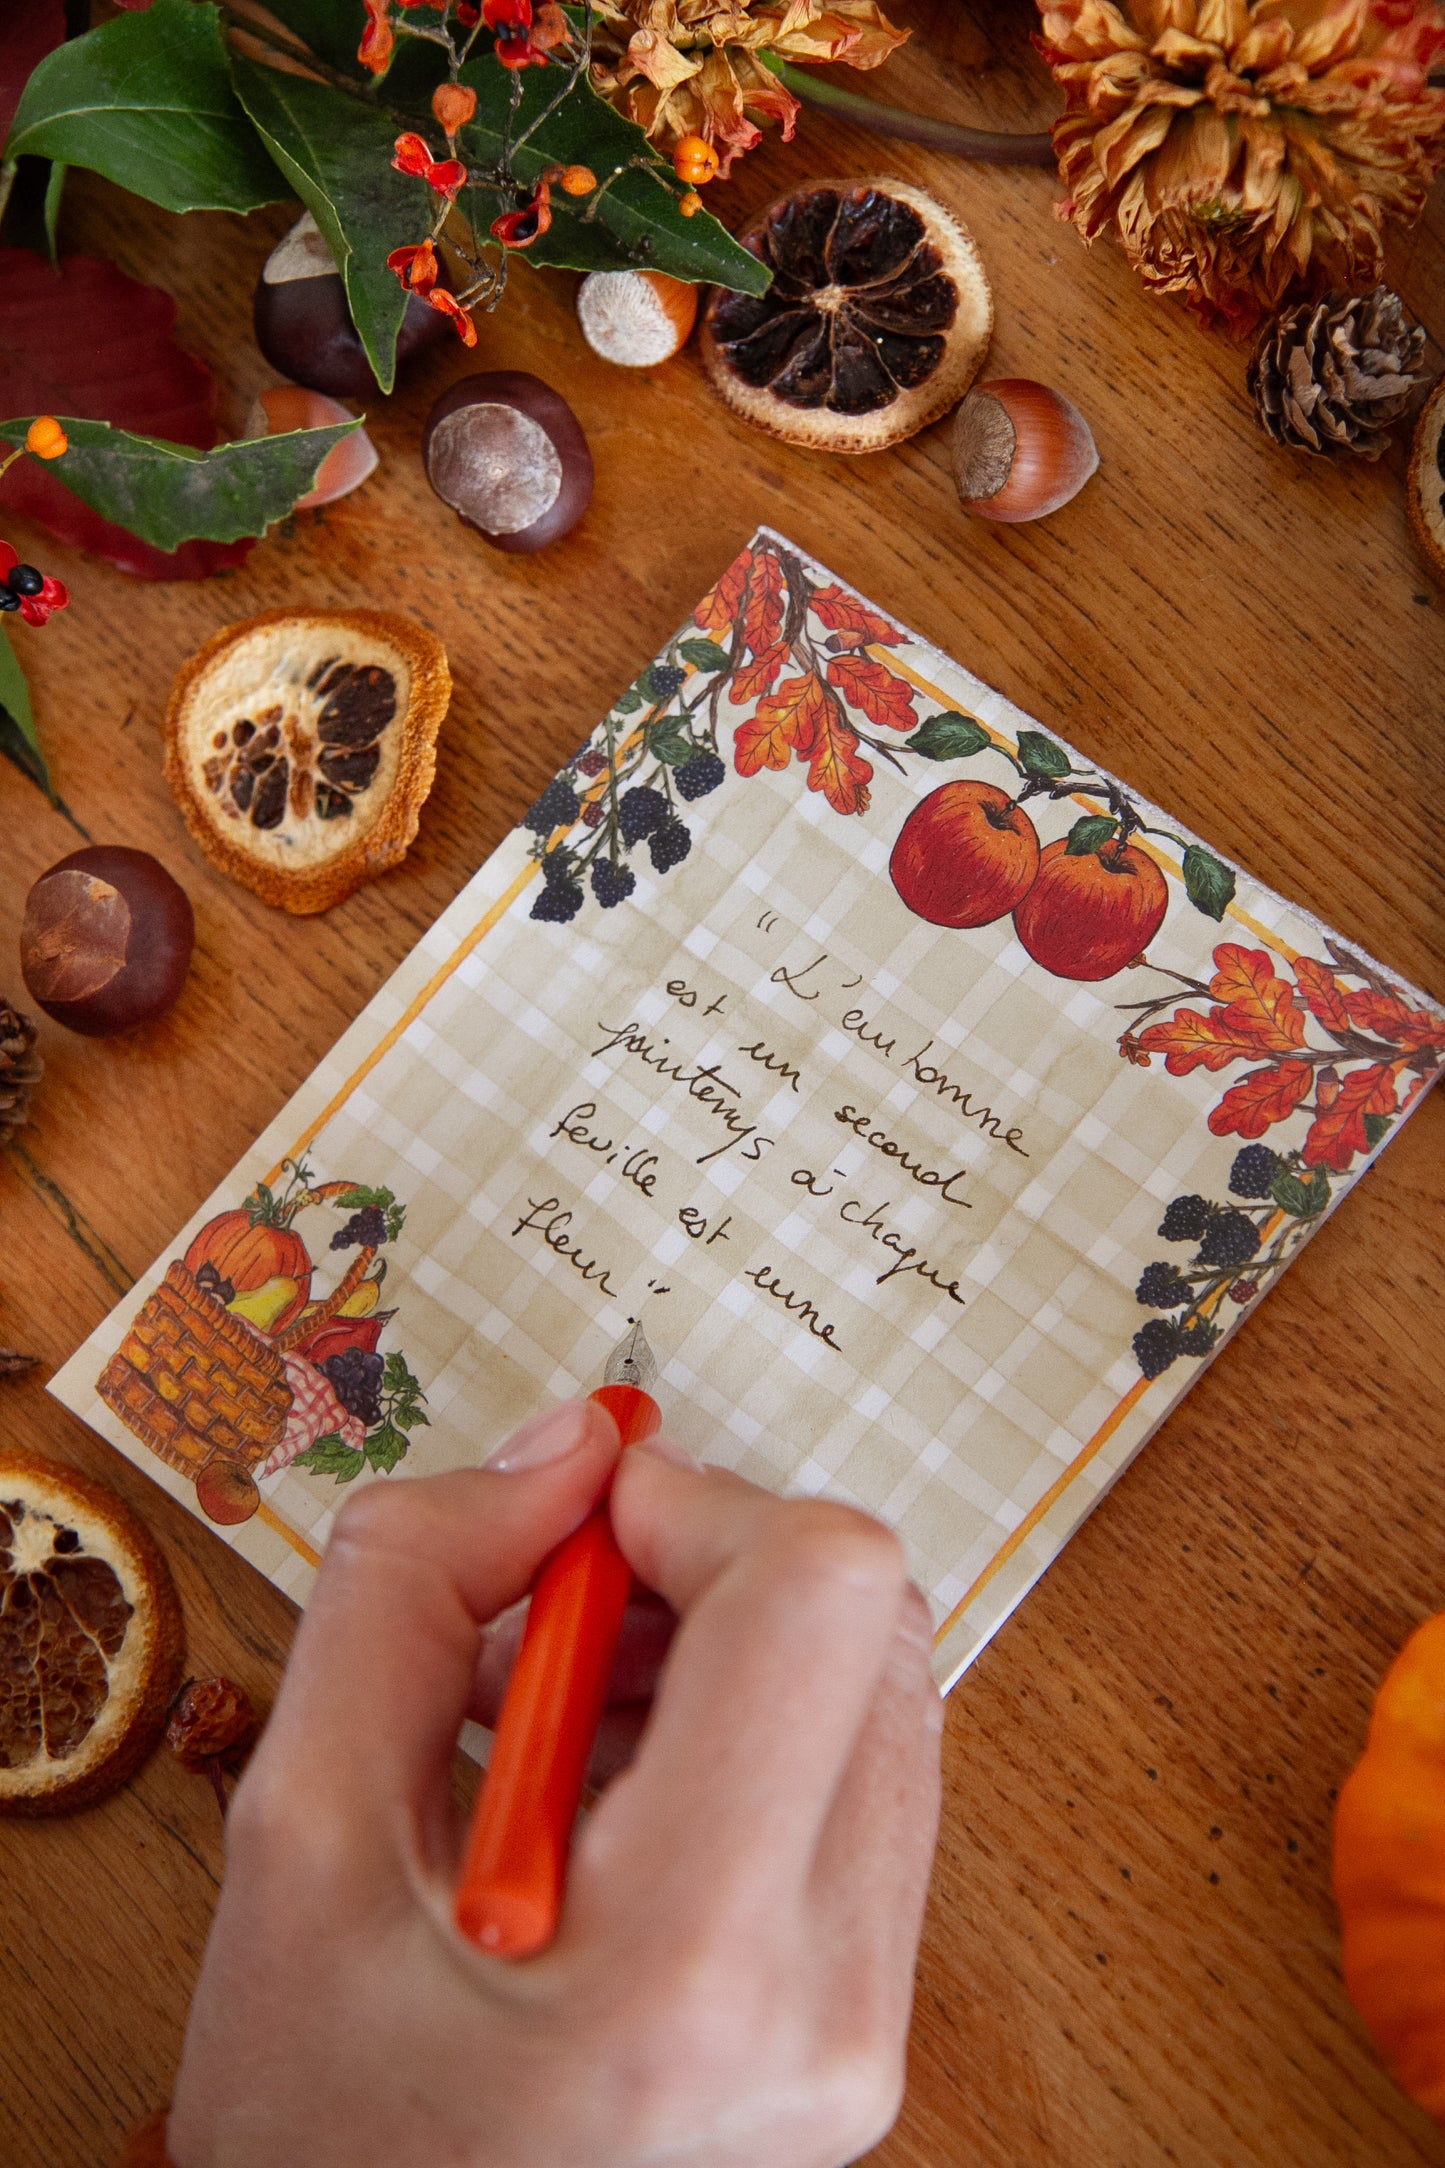 "L'automne
est un second
printemps à chaque
feuille est une
fleur"